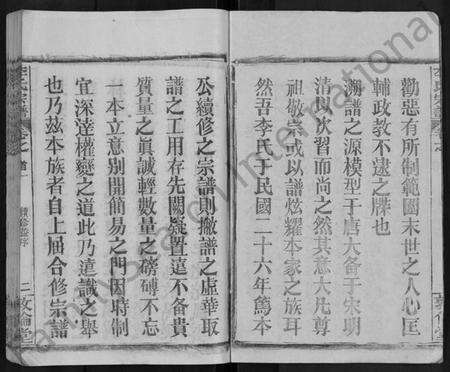 勸惡有所制範圍末世之人心匡
輔政教不遠之牒也
溯譜之源模型于唐大备于宋明
清以次習而尚之然其意大凡尊
祖敬崇或以譜炫耀本家之族耳
然吾李氏于民國二十六年篤本
公續修之宗譜則撇譜之虛華取
譜之工用存先闕疑置這不备貴
質量之眞誠輕數量之磅礡不忘
一本立意别開簡易之門因時制
宜深達權變之道此乃遠識之舉
也乃茲本族者自上屆合修宗譜
李氏宗譜 卷之首 續修譜序 二
FamilySearch International